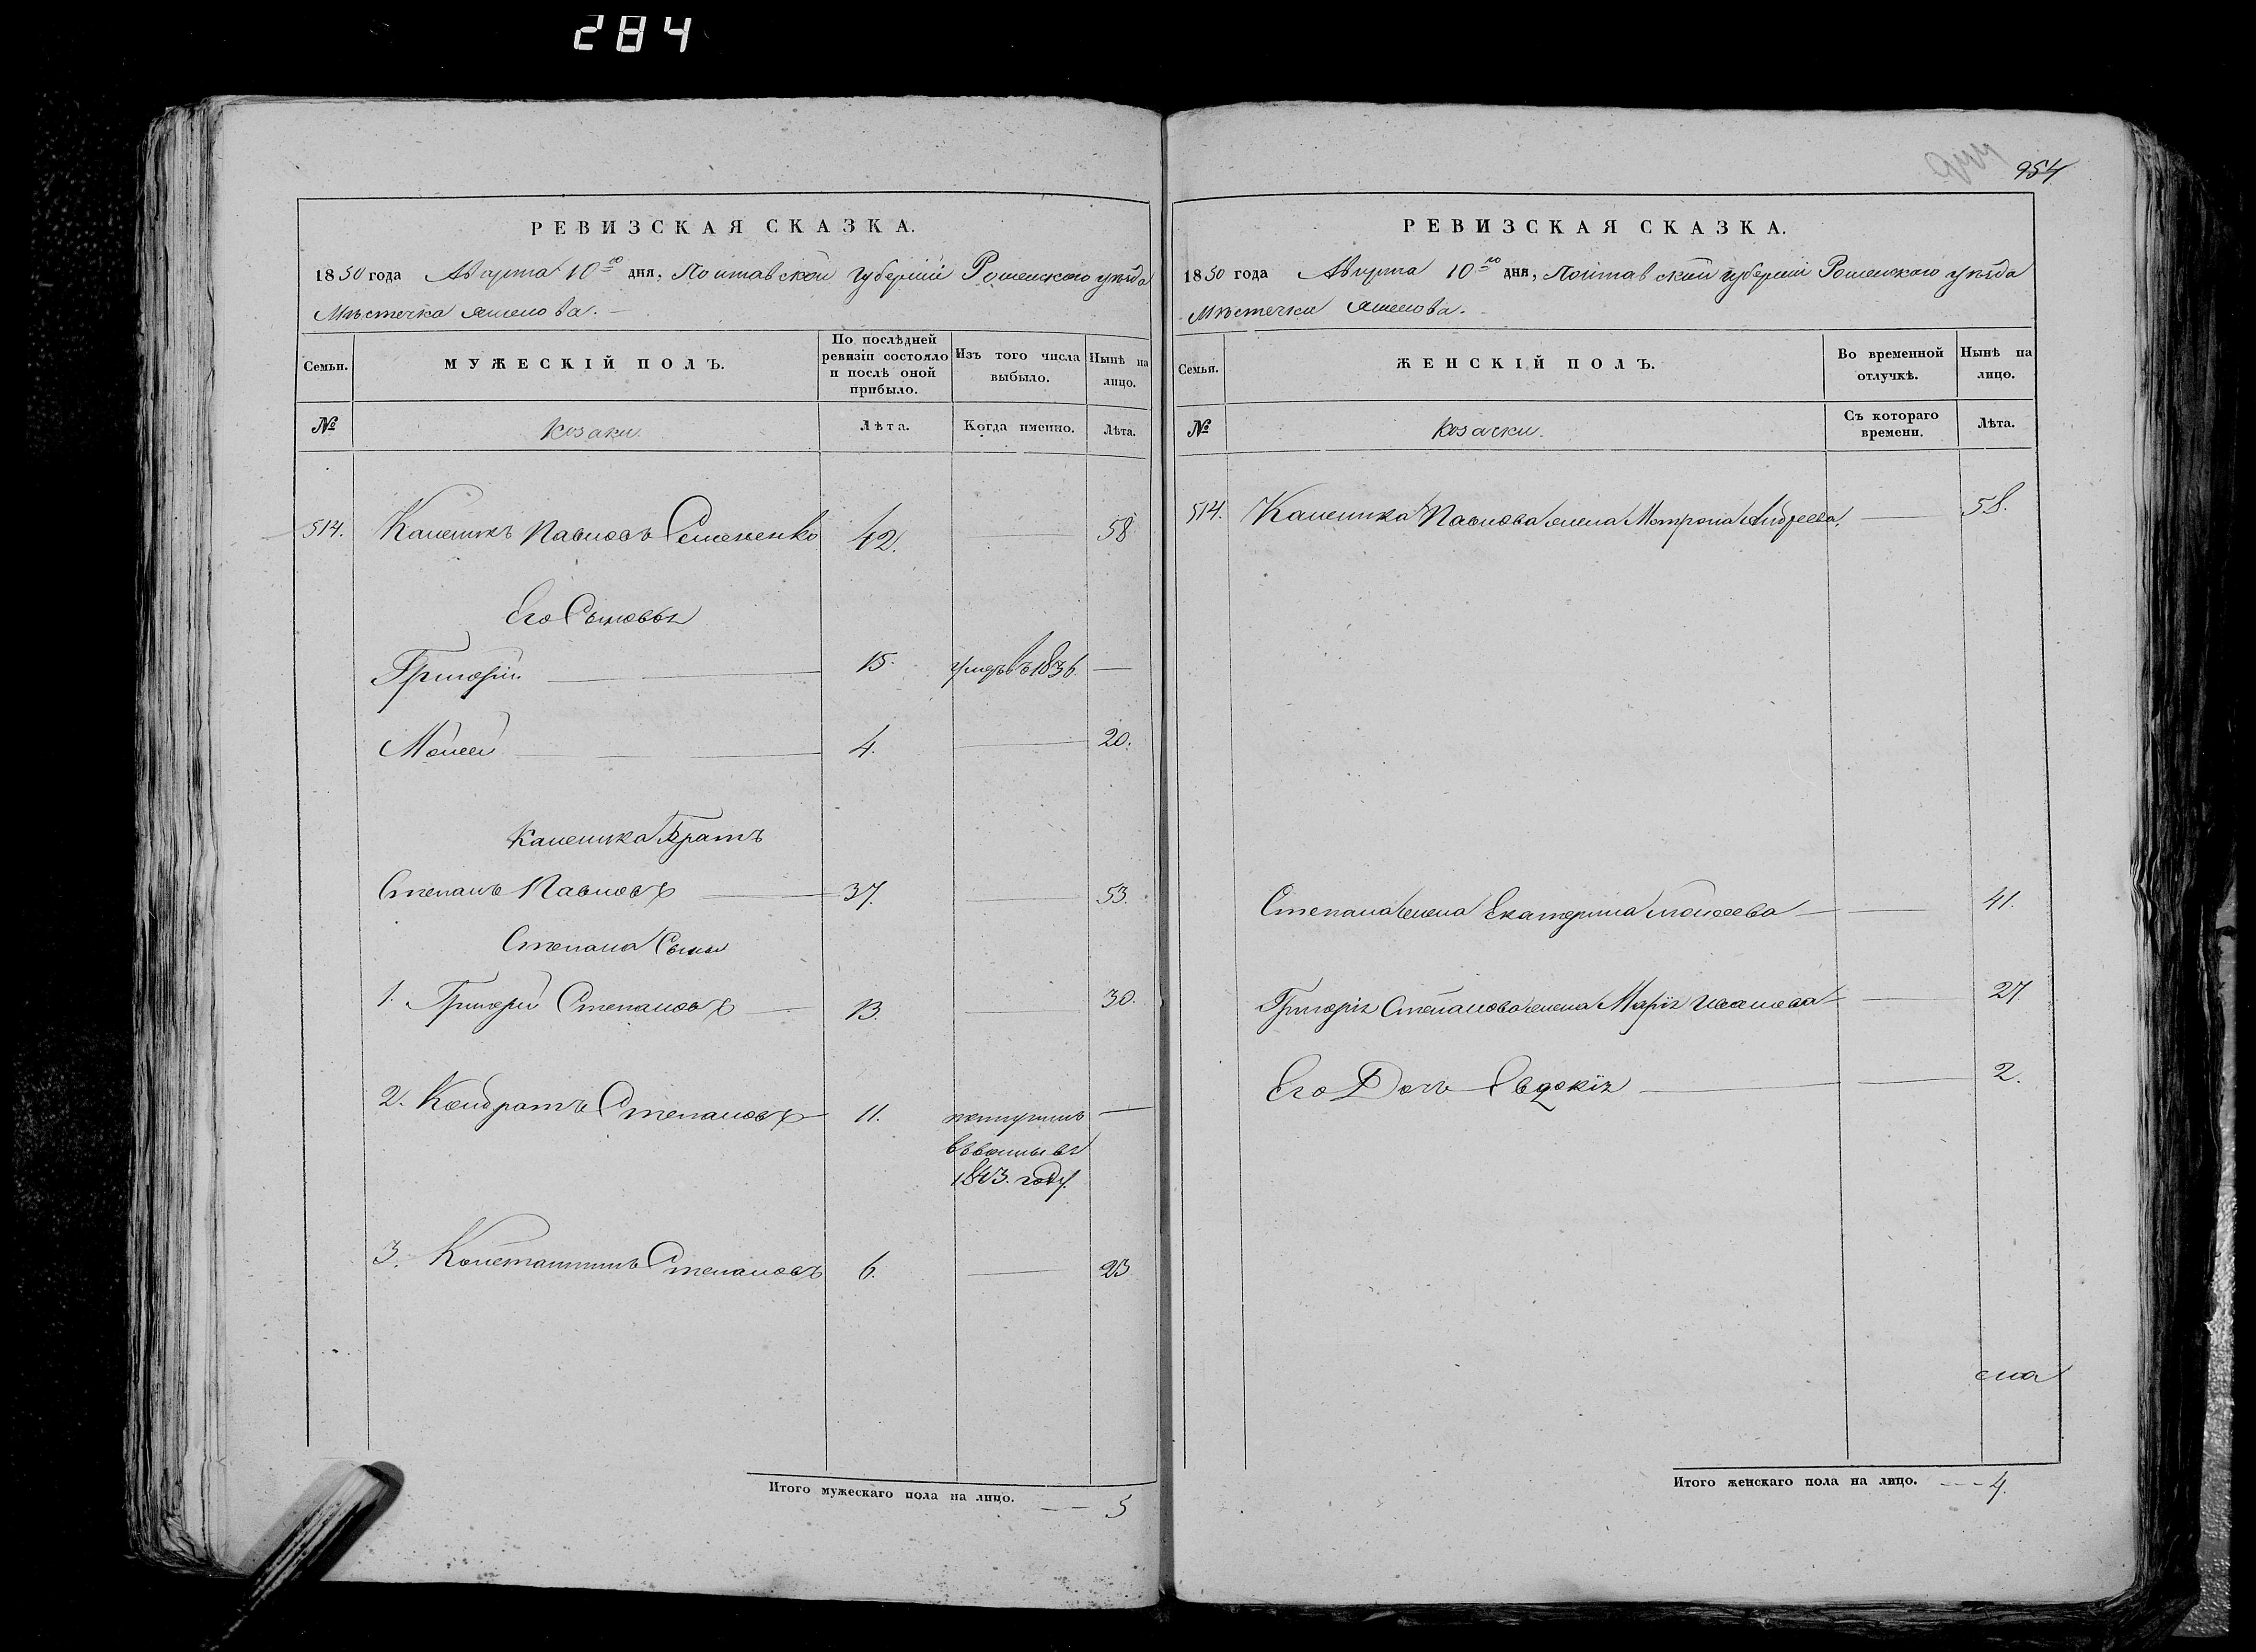 284
954
РЕВИЗСКАЯ СКАЗКА.
1850 года Августа 10го дня, Полтавской губернии Роменского уѣзда
Мѣстечка
Семьи.
МУЖЕСКІЙ ПОЛЪ.
По послѣдней ревизіи состояло и послѣ оной прибыло.
Изъ того числа выбыло.
Нынѣ на лицо.
№
Козаки
Лѣта.
Когда именно.
Лѣта.
514. Каленикъ Павловъ Семененко 42. — 58
Его Сыновья
Григорій — 15. умеръ въ 1836 —
Мосей — 4. — 20.
Каленика Братъ
Степанъ Павловъ — 37. 53.
Степана Сыны
1. Григорій Степановъ — 13. — 30.
2. Кондратъ Степановъ — 11. —
1843. году
3. Константинъ Степановъ 6. — 23
Итого мужескаго пола на лицо. — 5
РЕВИЗСКАЯ СКАЗКА.
1850 года Августа 10го дня, Полтавской губерніи Роменского уѣзда
Мѣстечка
Семьи.
ЖЕНСКІЙ ПОЛЪ.
Во временной отлучкѣ.
Нынѣ на лицо.
№
Козачки.
Съ котораго времени.
Лѣта.
514. Каленика Павлова жена Мотрона Андреева — 58.
Степана жена Екатерина Мосеева — 41.
Григорія Степанова жена Марія Иванова — 27
Его Дочь Евдокія — 2.
Итого женскаго пола на лицо. — 4.